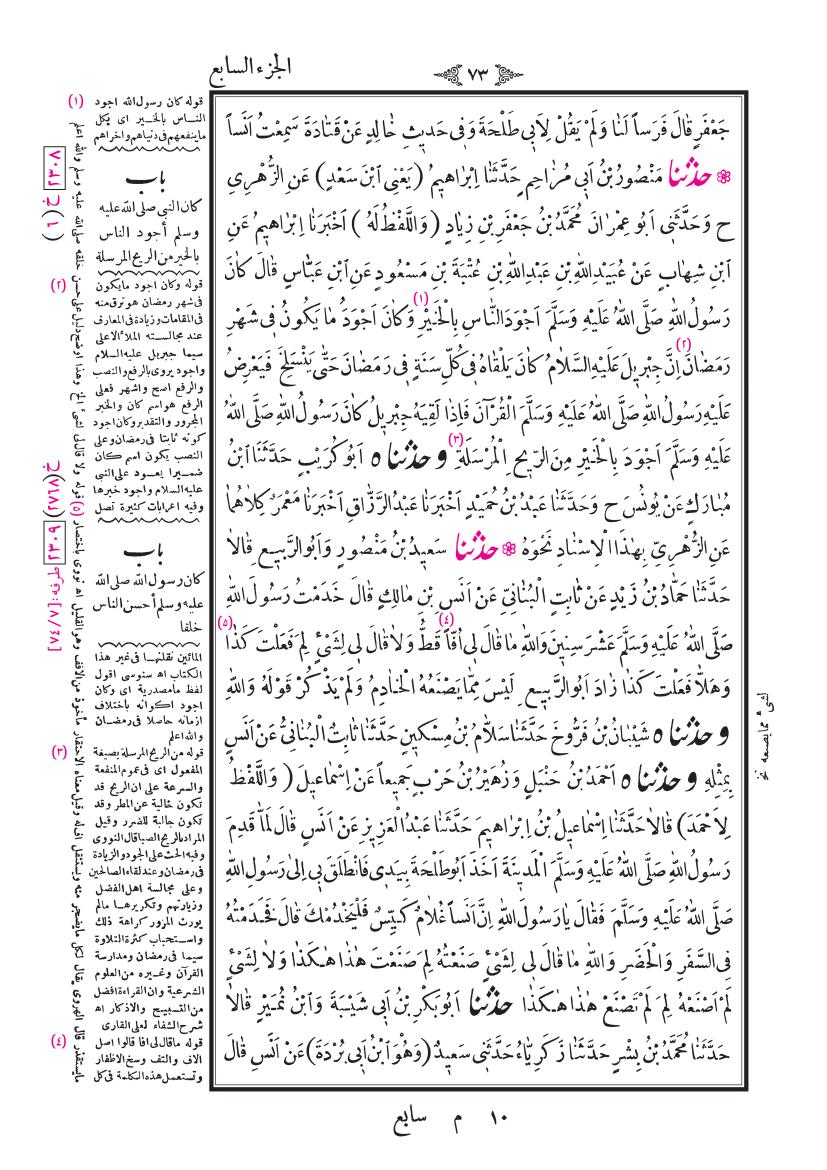 الجزء السابع
٧٣
جَعْفَرٍ قَالَ فَرَساً لَنَا وَلَمْ يَقُلْ لِاَبِى طَلْحَةَ وَفِى حَدِيثِ خَالِدٍ عَنْ قَتَادَةَ سَمِعْتُ اَنَساً
❁ حَدَّثَنَا مَنْصُورُ بْنُ اَبِى مُزَاحِمٍ حَدَّثَنَا اِبْرَاهِيمُ (يَعْنِى ابْنَ سَعْدٍ) عَنِ الزُّهْرِىِّ
ح وَحَدَّثَنِى اَبُو عِمْرَانَ مُحَمَّدُ بْنُ جَعْفَرِ بْنِ زِيَادٍ (وَاللَّفْظُ لَهُ) اَخْبَرَنَا اِبْرَاهِيمُ عَنِ
ابْنِ شِهَابٍ عَنْ عُبَيْدِ اللهِ بْنِ عَبْدِ اللهِ بْنِ عُتْبَةَ بْنِ مَسْعُودٍ عَنِ ابْنِ عَبَّاسٍ قَالَ كَانَ
رَسُولُ اللهِ صَلَّى اللهُ عَلَيْهِ وَسَلَّمَ اَجْوَدَ النَّاسِ بِالْخَيْرِ (١) وَكَانَ اَجْوَدُ مَا يَكُونُ فِى شَهْرِ
رَمَضَانَ (٢) اِنَّ جِبْرِيلَ عَلَيْهِ السَّلَامُ كَانَ يَلْقَاهُ فِى كُلِّ سَنَةٍ فِى رَمَضَانَ حَتَّى يَنْسَلِخَ فَيَعْرِضُ
عَلَيْهِ رَسُولُ اللهِ صَلَّى اللهُ عَلَيْهِ وَسَلَّمَ الْقُرْآنَ فَاِذَا لَقِيَهُ جِبْرِيلُ كَانَ رَسُولُ اللهِ صَلَّى اللهُ
عَلَيْهِ وَسَلَّمَ اَجْوَدَ بِالْخَيْرِ مِنَ الرِّيحِ الْمُرْسَلَةِ (٣) وَحَدَّثَنَاه اَبُو كُرَيْبٍ حَدَّثَنَا ابْنُ
مُبَارَكٍ عَنْ يُونُسَ ح وَحَدَّثَنَا عَبْدُ بْنُ حُمَيْدٍ اَخْبَرَنَا عَبْدُ الرَّزَّاقِ اَخْبَرَنَا مَعْمَرٌ كِلَاهُمَا
عَنِ الزُّهْرِىِّ بِهٰذَا الْاِسْنَادِ نَحْوَهُ ❁ حَدَّثَنَا سَعِيدُ بْنُ مَنْصُورٍ وَاَبُو الرَّبِيعِ قَالَا
حَدَّثَنَا حَمَّادُ بْنُ زَيْدٍ عَنْ ثَابِتٍ الْبُنَانِىِّ عَنْ اَنَسِ بْنِ مَالِكٍ قَالَ خَدَمْتُ رَسُولَ اللهِ
صَلَّى اللهُ عَلَيْهِ وَسَلَّمَ عَشْرَ سِنِينَ وَاللهِ مَا قَالَ لِى اُفّاً (٤) قَطُّ وَلَا قَالَ لِى لِشَىْءٍ لِمَ فَعَلْتَ كَذَا (٥)
وَهَلَّا فَعَلْتَ كَذَا زَادَ اَبُو الرَّبِيعِ لَيْسَ مِمَّا يَصْنَعُهُ الْخَادِمُ وَلَمْ يَذْكُرْ قَوْلَهُ وَاللهِ
وَحَدَّثَنَاه شَيْبَانُ بْنُ فَرُّوخَ حَدَّثَنَا سَلَّامُ بْنُ مِسْكِينٍ حَدَّثَنَا ثَابِتٌ الْبُنَانِىُّ عَنْ اَنَسٍ
بِمِثْلِهِ وَحَدَّثَنَاه اَحْمَدُ بْنُ حَنْبَلٍ وَزُهَيْرُ بْنُ حَرْبٍ جَمِيعاً عَنْ اِسْمَاعِيلَ (وَاللَّفْظُ
لِاَحْمَدَ) قَالَا حَدَّثَنَا اِسْمَاعِيلُ بْنُ اِبْرَاهِيمَ حَدَّثَنَا عَبْدُ الْعَزِيزِ عَنْ اَنَسٍ قَالَ لَمَّا قَدِمَ
رَسُولُ اللهِ صَلَّى اللهُ عَلَيْهِ وَسَلَّمَ الْمَدِينَةَ اَخَذَ اَبُو طَلْحَةَ بِيَدِى فَانْطَلَقَ بِى اِلَى رَسُولِ اللهِ
صَلَّى اللهُ عَلَيْهِ وَسَلَّمَ فَقَالَ يَا رَسُولَ اللهِ اِنَّ اَنَساً غُلَامٌ كَيِّسٌ فَلْيَخْدُمْكَ قَالَ فَخَدَمْتُهُ
فِى السَّفَرِ وَالْحَضَرِ وَاللهِ مَا قَالَ لِى لِشَىْءٍ صَنَعْتُهُ لِمَ صَنَعْتَ هٰذَا هٰكَذَا وَلَا لِشَىْءٍ
لَمْ اَصْنَعْهُ لِمَ لَمْ تَصْنَعْ هٰذَا هٰكَذَا حَدَّثَنَا اَبُو بَكْرِ بْنُ اَبِى شَيْبَةَ وَابْنُ نُمَيْرٍ قَالَا
حَدَّثَنَا مُحَمَّدُ بْنُ بِشْرٍ حَدَّثَنَا زَكَرِيَّاءُ حَدَّثَنِى سَعِيدٌ (وَهُوَ ابْنُ اَبِى بُرْدَةَ) عَنْ اَنَسٍ قَالَ
(١) قوله كان رسول الله اجود
الناس بالخير اى بكل
ما ينفعهم فى دنياهم واخراهم
باب
كان النبى صلى الله عليه
وسلم أجود الناس
بالخير من الريح المرسلة
(٢) قوله وكان اجود ما يكون
فى شهر رمضان هو ترق منه
فى المقامات وزيادة فى المعارف
عند مجالسته الملأ الاعلى
سيما جبريل عليه السلام
واجود يروى بالرفع والنصب
والرفع اصح واشهر فعلى
الرفع هو اسم كان والخبر
المجرور والتقدير وكان اجود
كونه ثابتا فى رمضان وعلى
النصب يكون اسم كان
ضميرا يعود على النبى
عليه السلام واجود خبرها
وفيه اعرابات كثيرة تصل
باب
كان رسول الله صلى الله
عليه وسلم أحسن الناس
خلقا
المائين نقلتها فى غير هذا
الكتاب اه سنوسى اقول
لفظ ما مصدرية اى وكان
اجود اكوانه باختلاف
ازمانه حاصلا فى رمضان
والله اعلم
(٣) قوله من الريح المرسلة بصيغة
المفعول اى فى عموم المنفعة
والسرعة على ان الريح قد
تكون خالية عن المطر وقد
تكون جالبة للضرر وقيل
المراد بالريح الصبا قال النووى
وفيه الحث على الجود والزيادة
فى رمضان وعند لقاء الصالحين
وعلى مجالسة اهل الفضل
وزيارتهم وتكريرها مالم
يورث المزور كراهة ذلك
واستحباب كثرة التلاوة
سيما فى رمضان ومدارسة
القرآن وغيره من العلوم
الشرعية وان القراءة افضل
من التسبيح والاذكار اه
شرح الشفاء لعلى القارى
(٤) قوله ما قال لى افا قالوا اصل
الاف والتف وسخ الاظفار
وتستعمل هذه الكلمة فى كل
ما يستقذر قال الهروى يقال لكل ما يضجر منه ويستثقل اف له وقيل معناه الاحتقار مأخوذ من الافف وهو القليل اه نووى باختصار (٥) قوله ولا قال لى لشىء الخ وهذا اوضح دليل على حسن خلقه صلى الله عليه وسلم والله اعلم
٢٣٠٧ خ (١)
خ (٢٧٦٨) ٢٣٠٩
لشئ مما يصنعه نخ
١٠ م سابع